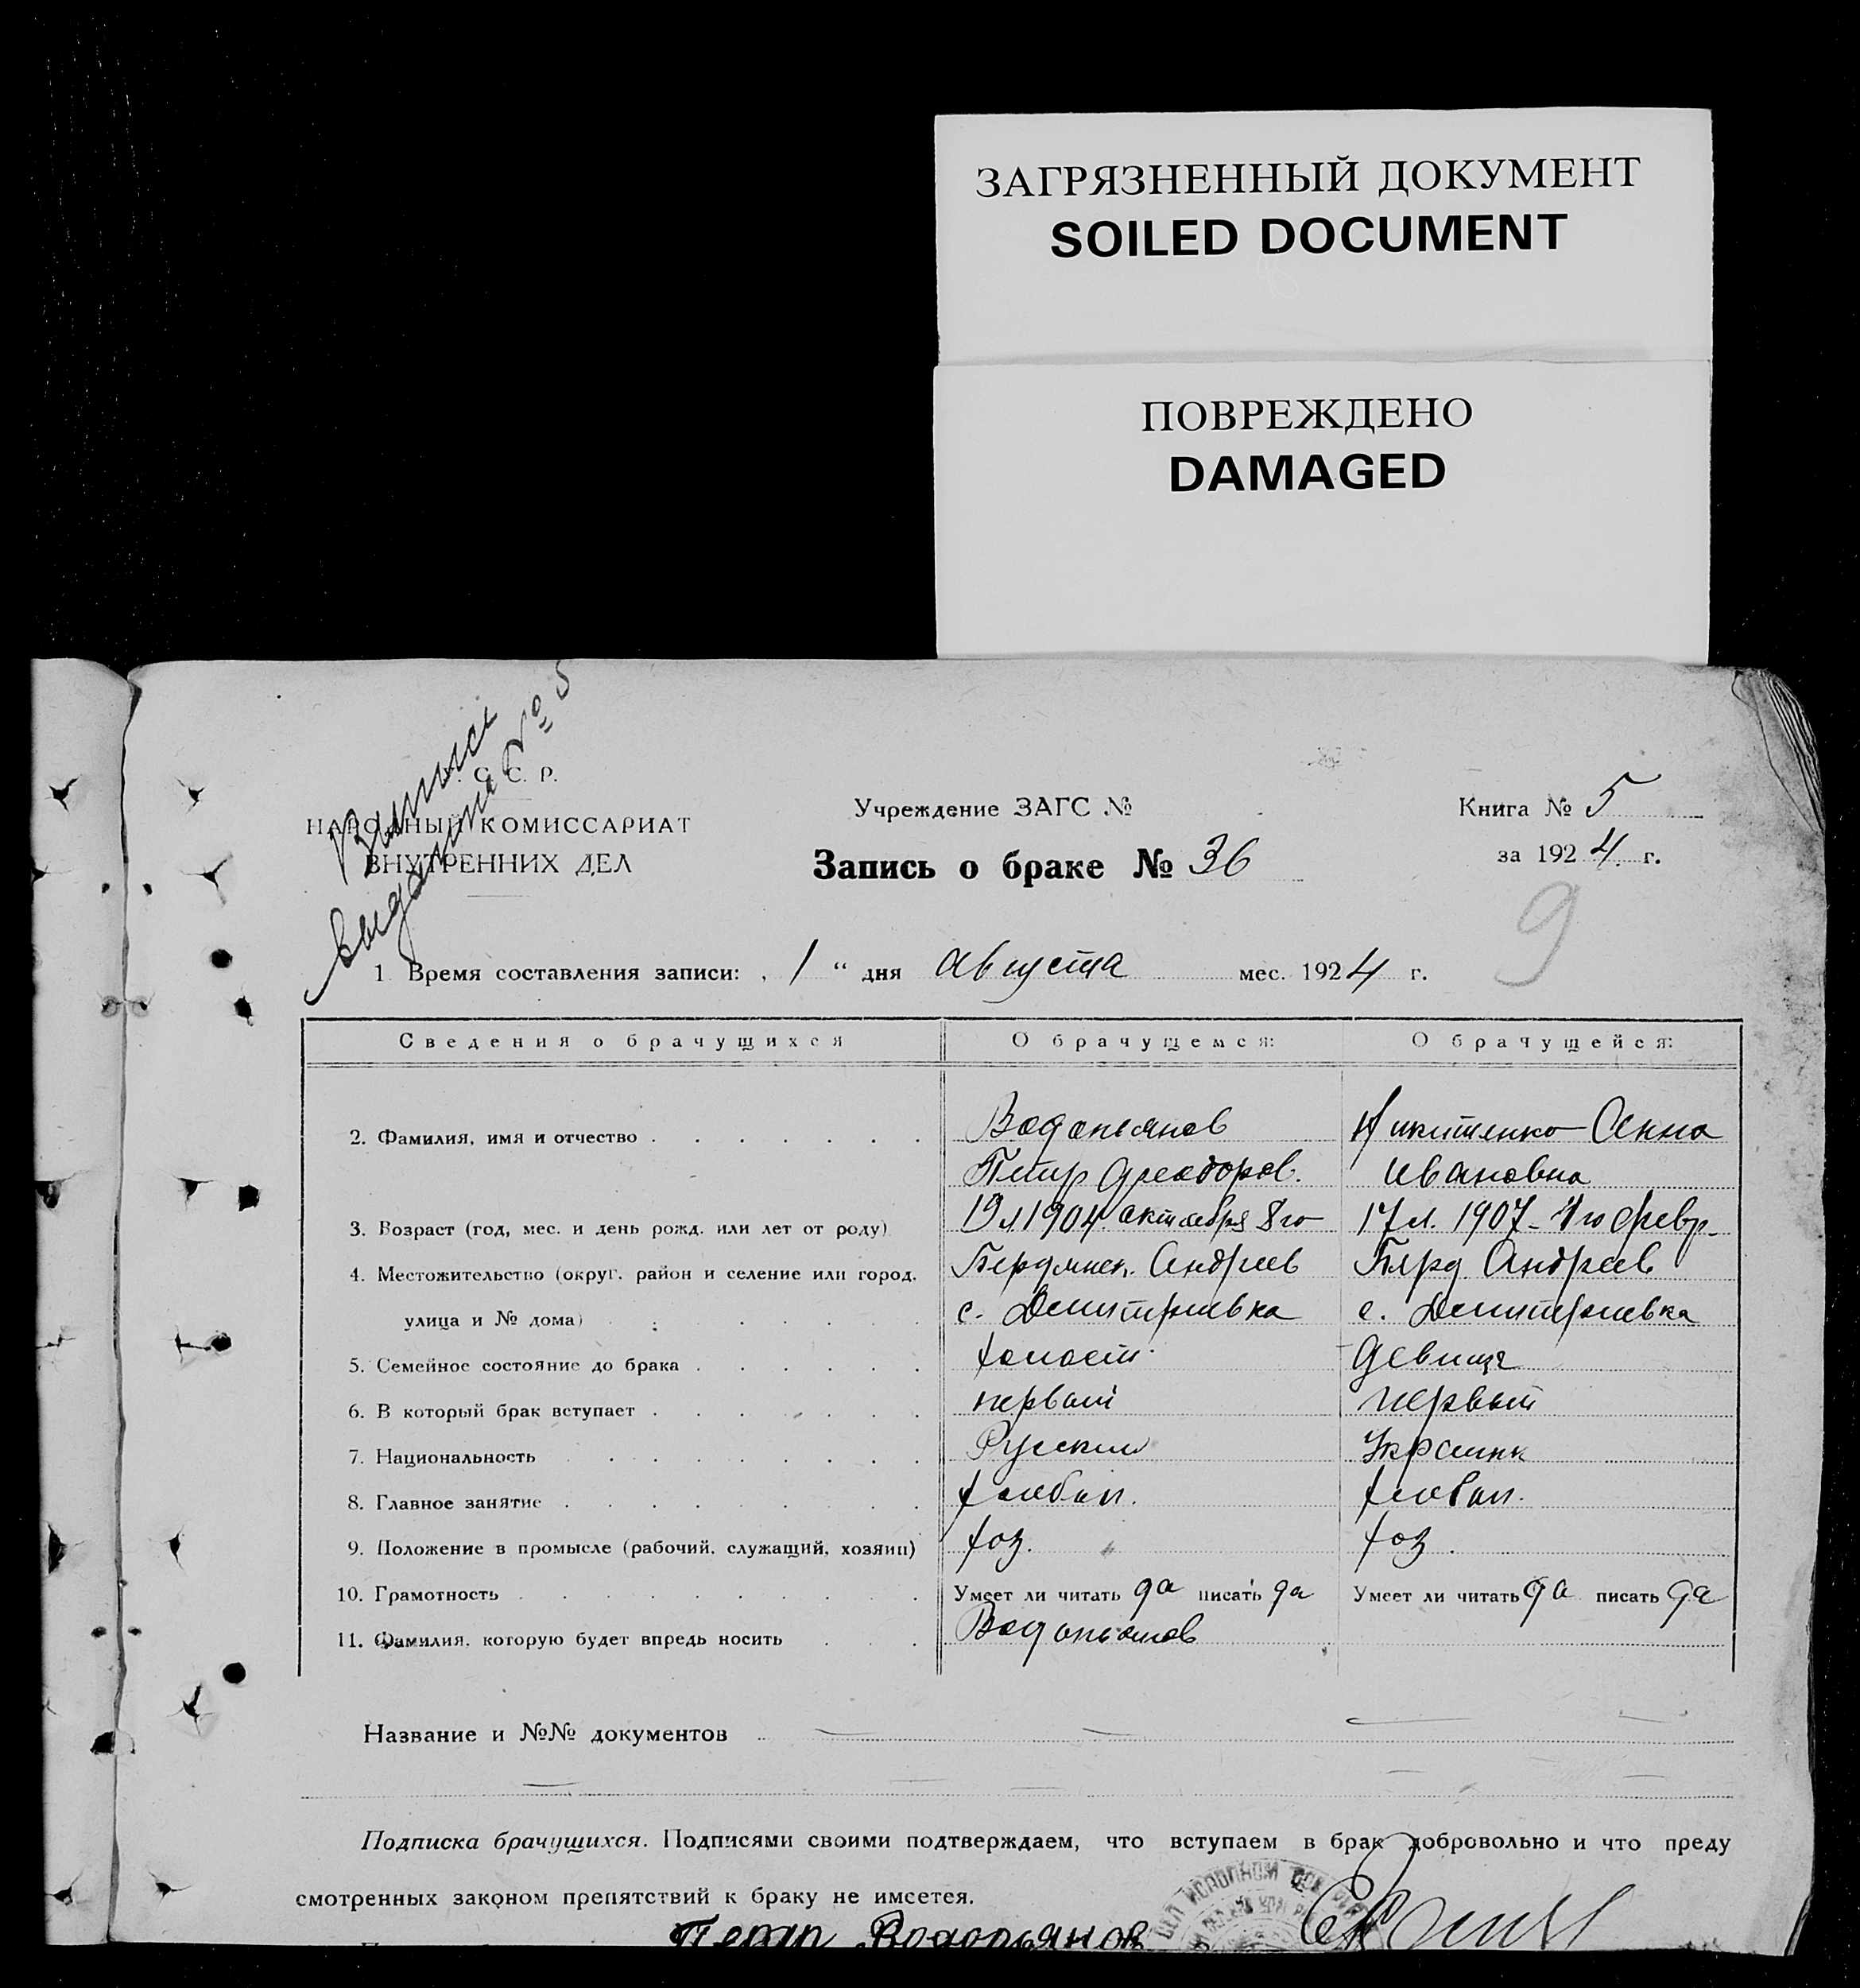 ЗАГРЯЗНЕННЫЙ ДОКУМЕНТ
SOILED DOCUMENT
ПОВРЕЖДЕНО
DAMAGED
Выпись
выдана № 5
С. С. Р.
НАРОДНЫЙ КОМИССАРИАТ
ВНУТРЕННИХ ДЕЛ
Учреждение ЗАГС №
Запись о браке № 36
Книга № 5
за 1924 г.
9
1. Время составления записи: „ 1 “ дня августа мес. 1924 г.
Сведения о брачущихся О брачущемся: О брачущейся:
2. Фамилия, имя и отчество Водопьянов Никитенко Анна
Петр Феодоров. Ивановна
3. Возраст (год, мес. и день рожд. или лет от роду) 19 л 1904 октября 8го 17 л. 1907 - 4го февр.
4. Местожительство (округ, район и селение или город, Бердянск. Андреев Бярд Андреев
улица и № дома) с. Демитриевка с. Демитриевка
5. Семейное состояние до брака холост девица
6. В который брак вступает первый первый
7. Национальность Русский Украинк
8. Главное занятие хлебоп. хлебоп.
9. Положение в промысле (рабочий, служащий, хозяин) хоз. хоз.
10. Грамотность Умеет ли читать да писать да Умеет ли читать да писать да
11. Фамилия, которую будет впредь носить Водопьянов
Название и №№ документов
Подписка брачущихся. Подписями своими подтверждаем, что вступаем в брак добровольно и что преду
смотренных законом препятствий к браку не имеется.
Петр Водопьянов